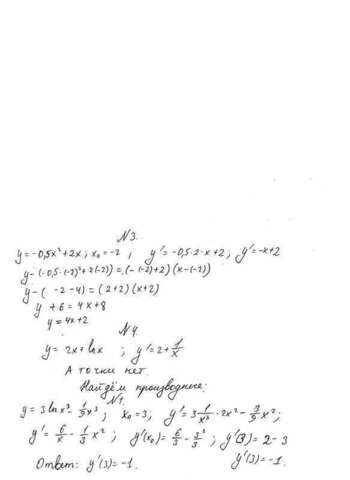 N 3.
y = -0,5x² + 2x ; x₀ = -2 ; y' = -0,5·2·x + 2 ; y' = -x + 2
y - (-0,5·(-2)² + 2(-2)) = (-(-2) + 2) (x - (-2))
y - ( -2 - 4) = (2 + 2) (x + 2)
y + 6 = 4x + 8
y = 4x + 2
N 4.
y = 2x + ln x ; y' = 2 + 1/x
А точки нет.
Найдём производные:
N 1.
y = 3 ln x² - 1/9 x³ ; x₀ = 3 ; y' = 3 1/x² · 2x² - 3/9 x² ;
y' = 6/x - 1/3 x² ; y'(x₀) = 6/3 - 3²/3 ; y'(3) = 2 - 3
Ответ: y'(3) = -1. y'(3) = -1.